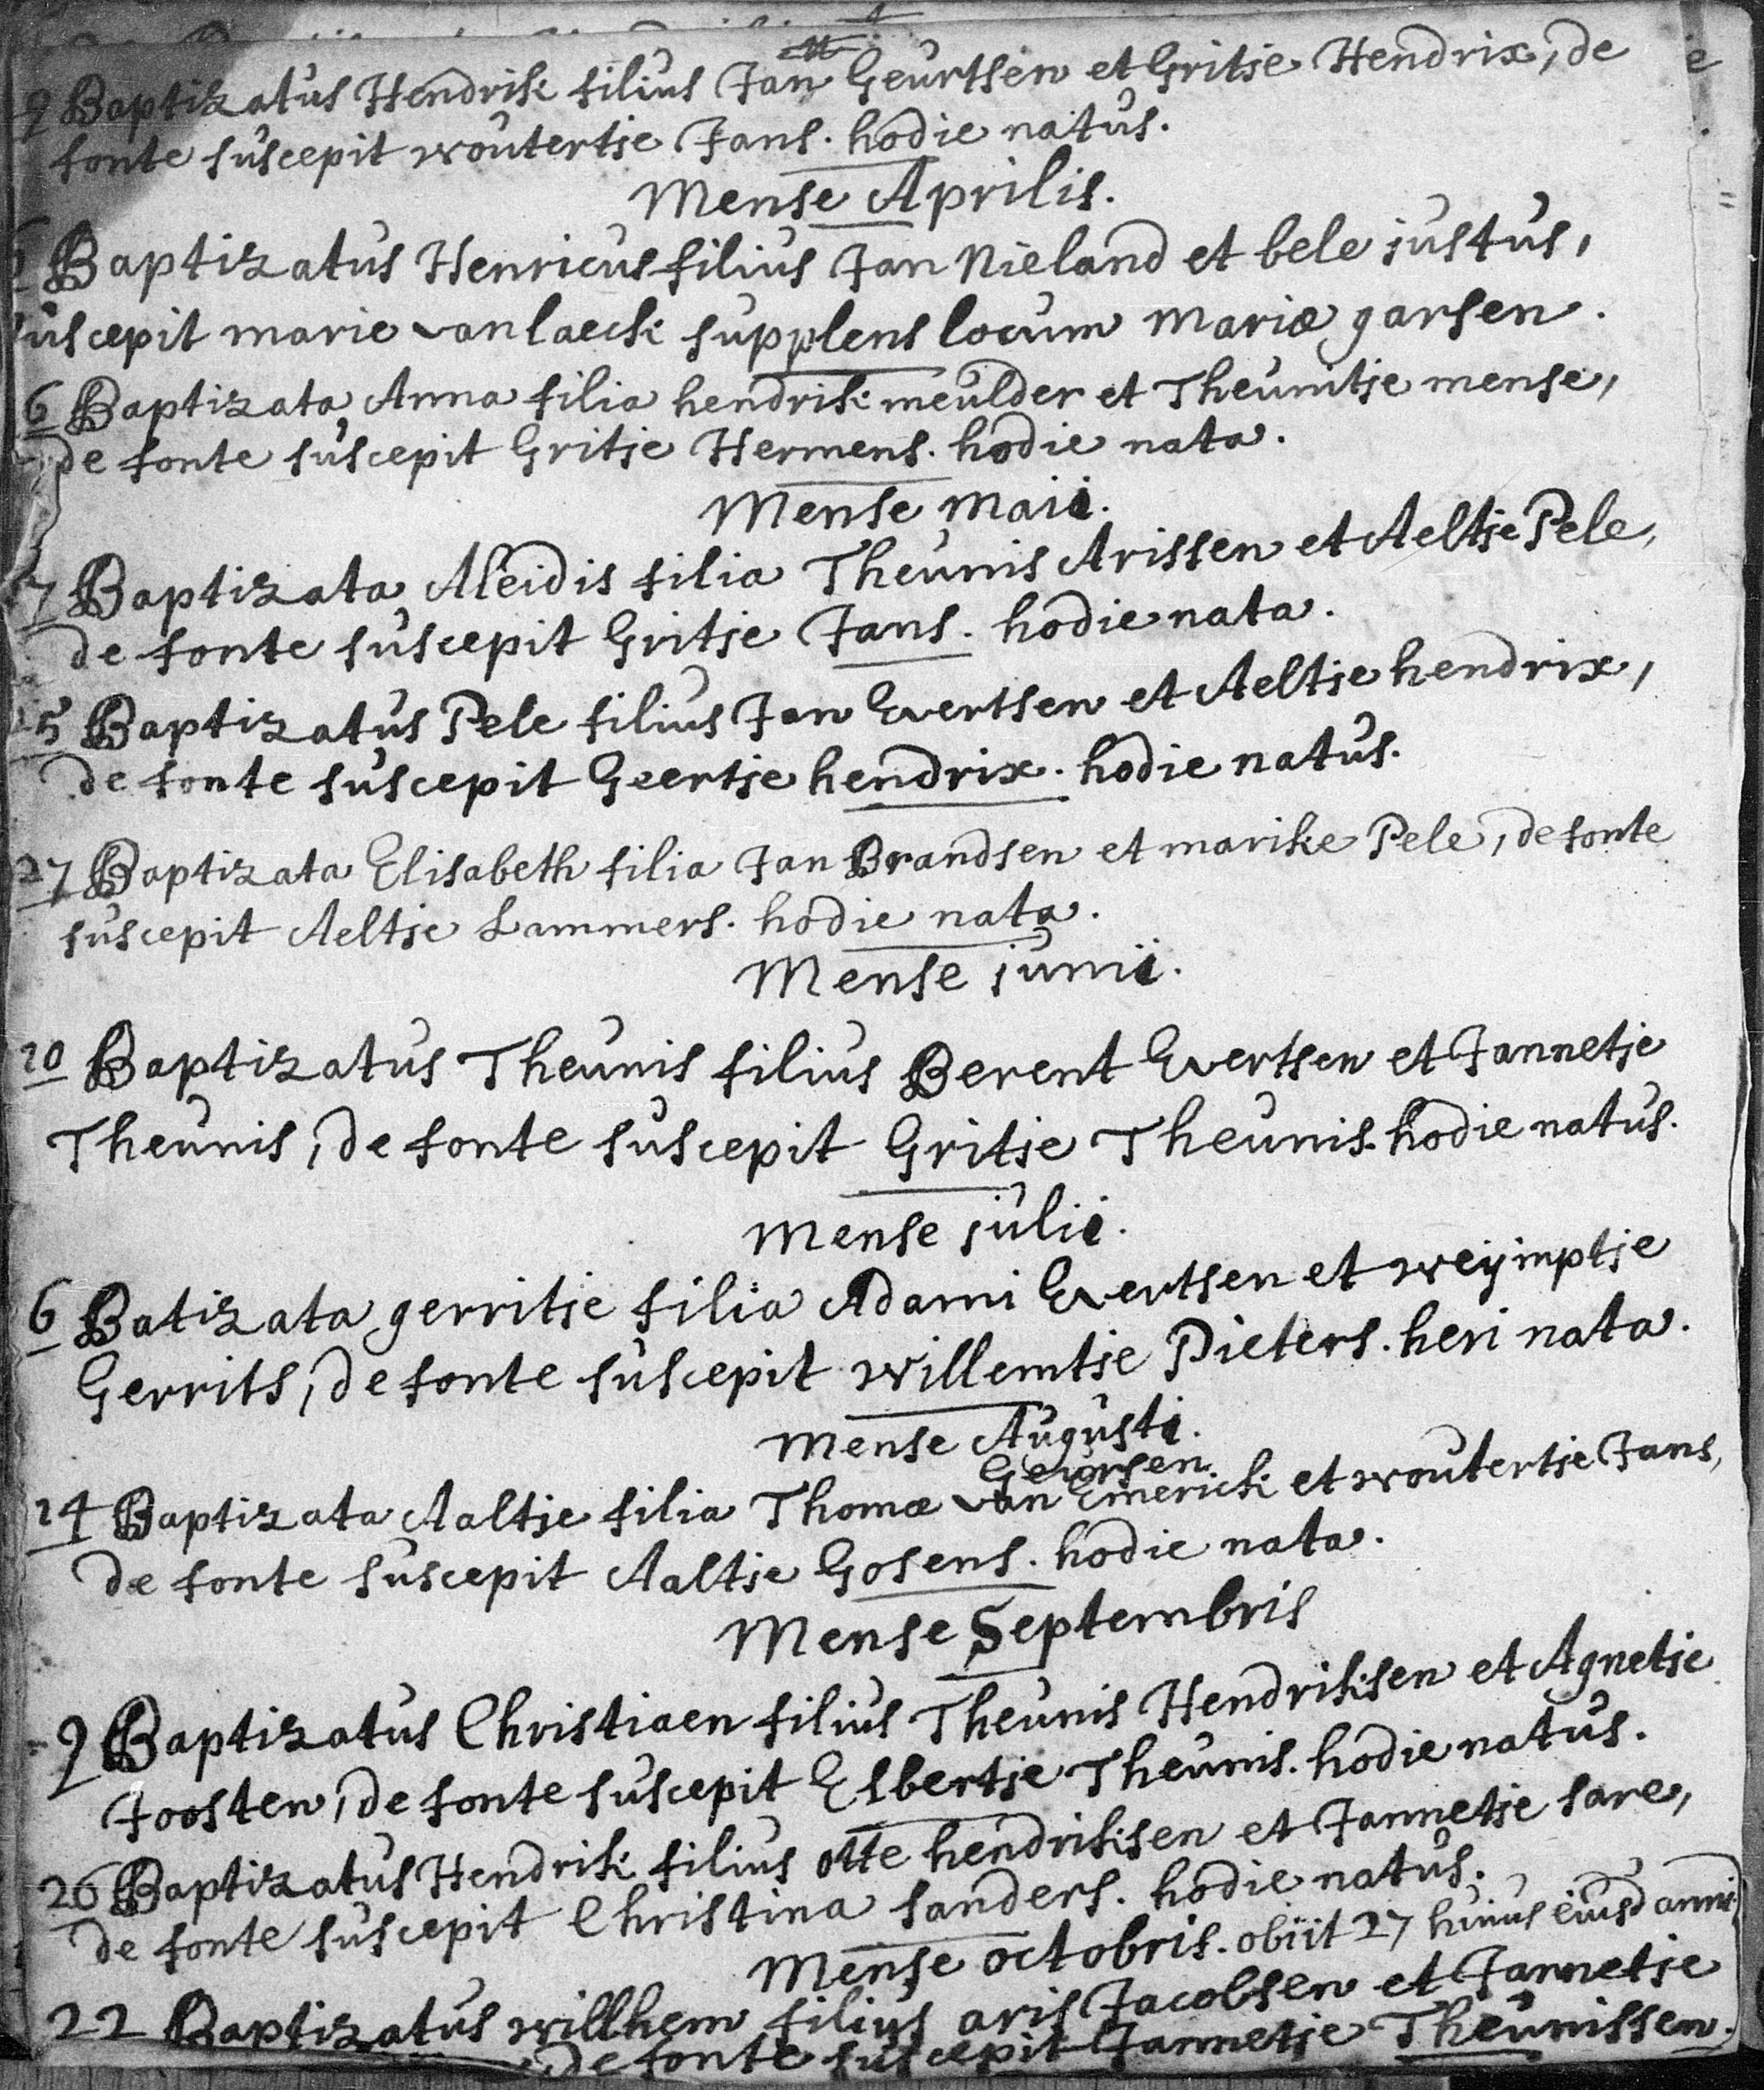 9 Baptizatus Hendrik filius Jan Geurtsen et Gritje Hendrix, de
fonte suscepit woutertje Jans. hodie natus.
Mense Aprilis.
Baptizatus Henricus filius Jan Nieland et bele justus,
suscepit marie van laeck supplens locum Mariæ garsen.
6 Baptizata Anna filia hendrik meulder et Theunitje mense,
de fonte suscepit Gritje Hermens. hodie nata.
Mense maii.
7 Baptizata Aleidis filia Theunis Arissen et Aeltje Pele,
de fonte suscepit Gritje Jans. hodie nata.
15 Baptizatus Pele filius Jan Evertsen et Aeltje hendrix,
de fonte suscepit Geertje hendrix. hodie natus.
27 Baptizata Elisabeth filia Jan Brandsen et marike Pele, de fonte
suscepit Aeltje Lammers. hodie nata.
Mense junii.
20 Baptizatus Theunis filius Berent Evertsen et Jannetje
Theunis, de fonte suscepit Gritje Theunis. hodie natus.
Mense julii.
6 Batizata gerritje filia Adami Evertsen et weijmptje
Gerrits, de fonte suscepit willemtje Pieters. heri nata.
Mense Augusti.
Geursen
14 Baptizata Aaltje filia Thomæ van Emerick et woutertje Jans,
de fonte suscepit Aaltje Gosens. hodie nata.
Mense Septembris
9 Baptizatus Christiaen filius Theunis Hendriksen et Agnetje
Joosten, de fonte suscepit Elbertje Theunis. hodie natus.
26 Baptizatus Hendrik filius otte hendriksen et Jannetje sare,
de fonte suscepit Christina sanders. hodie natus.
Mense octobris. obiit 27 hujus ejusd anni
22 Baptizatus willhem filius aris Jacobsen et Jannetje
de fonte suscepit Jannetje Theunissen.